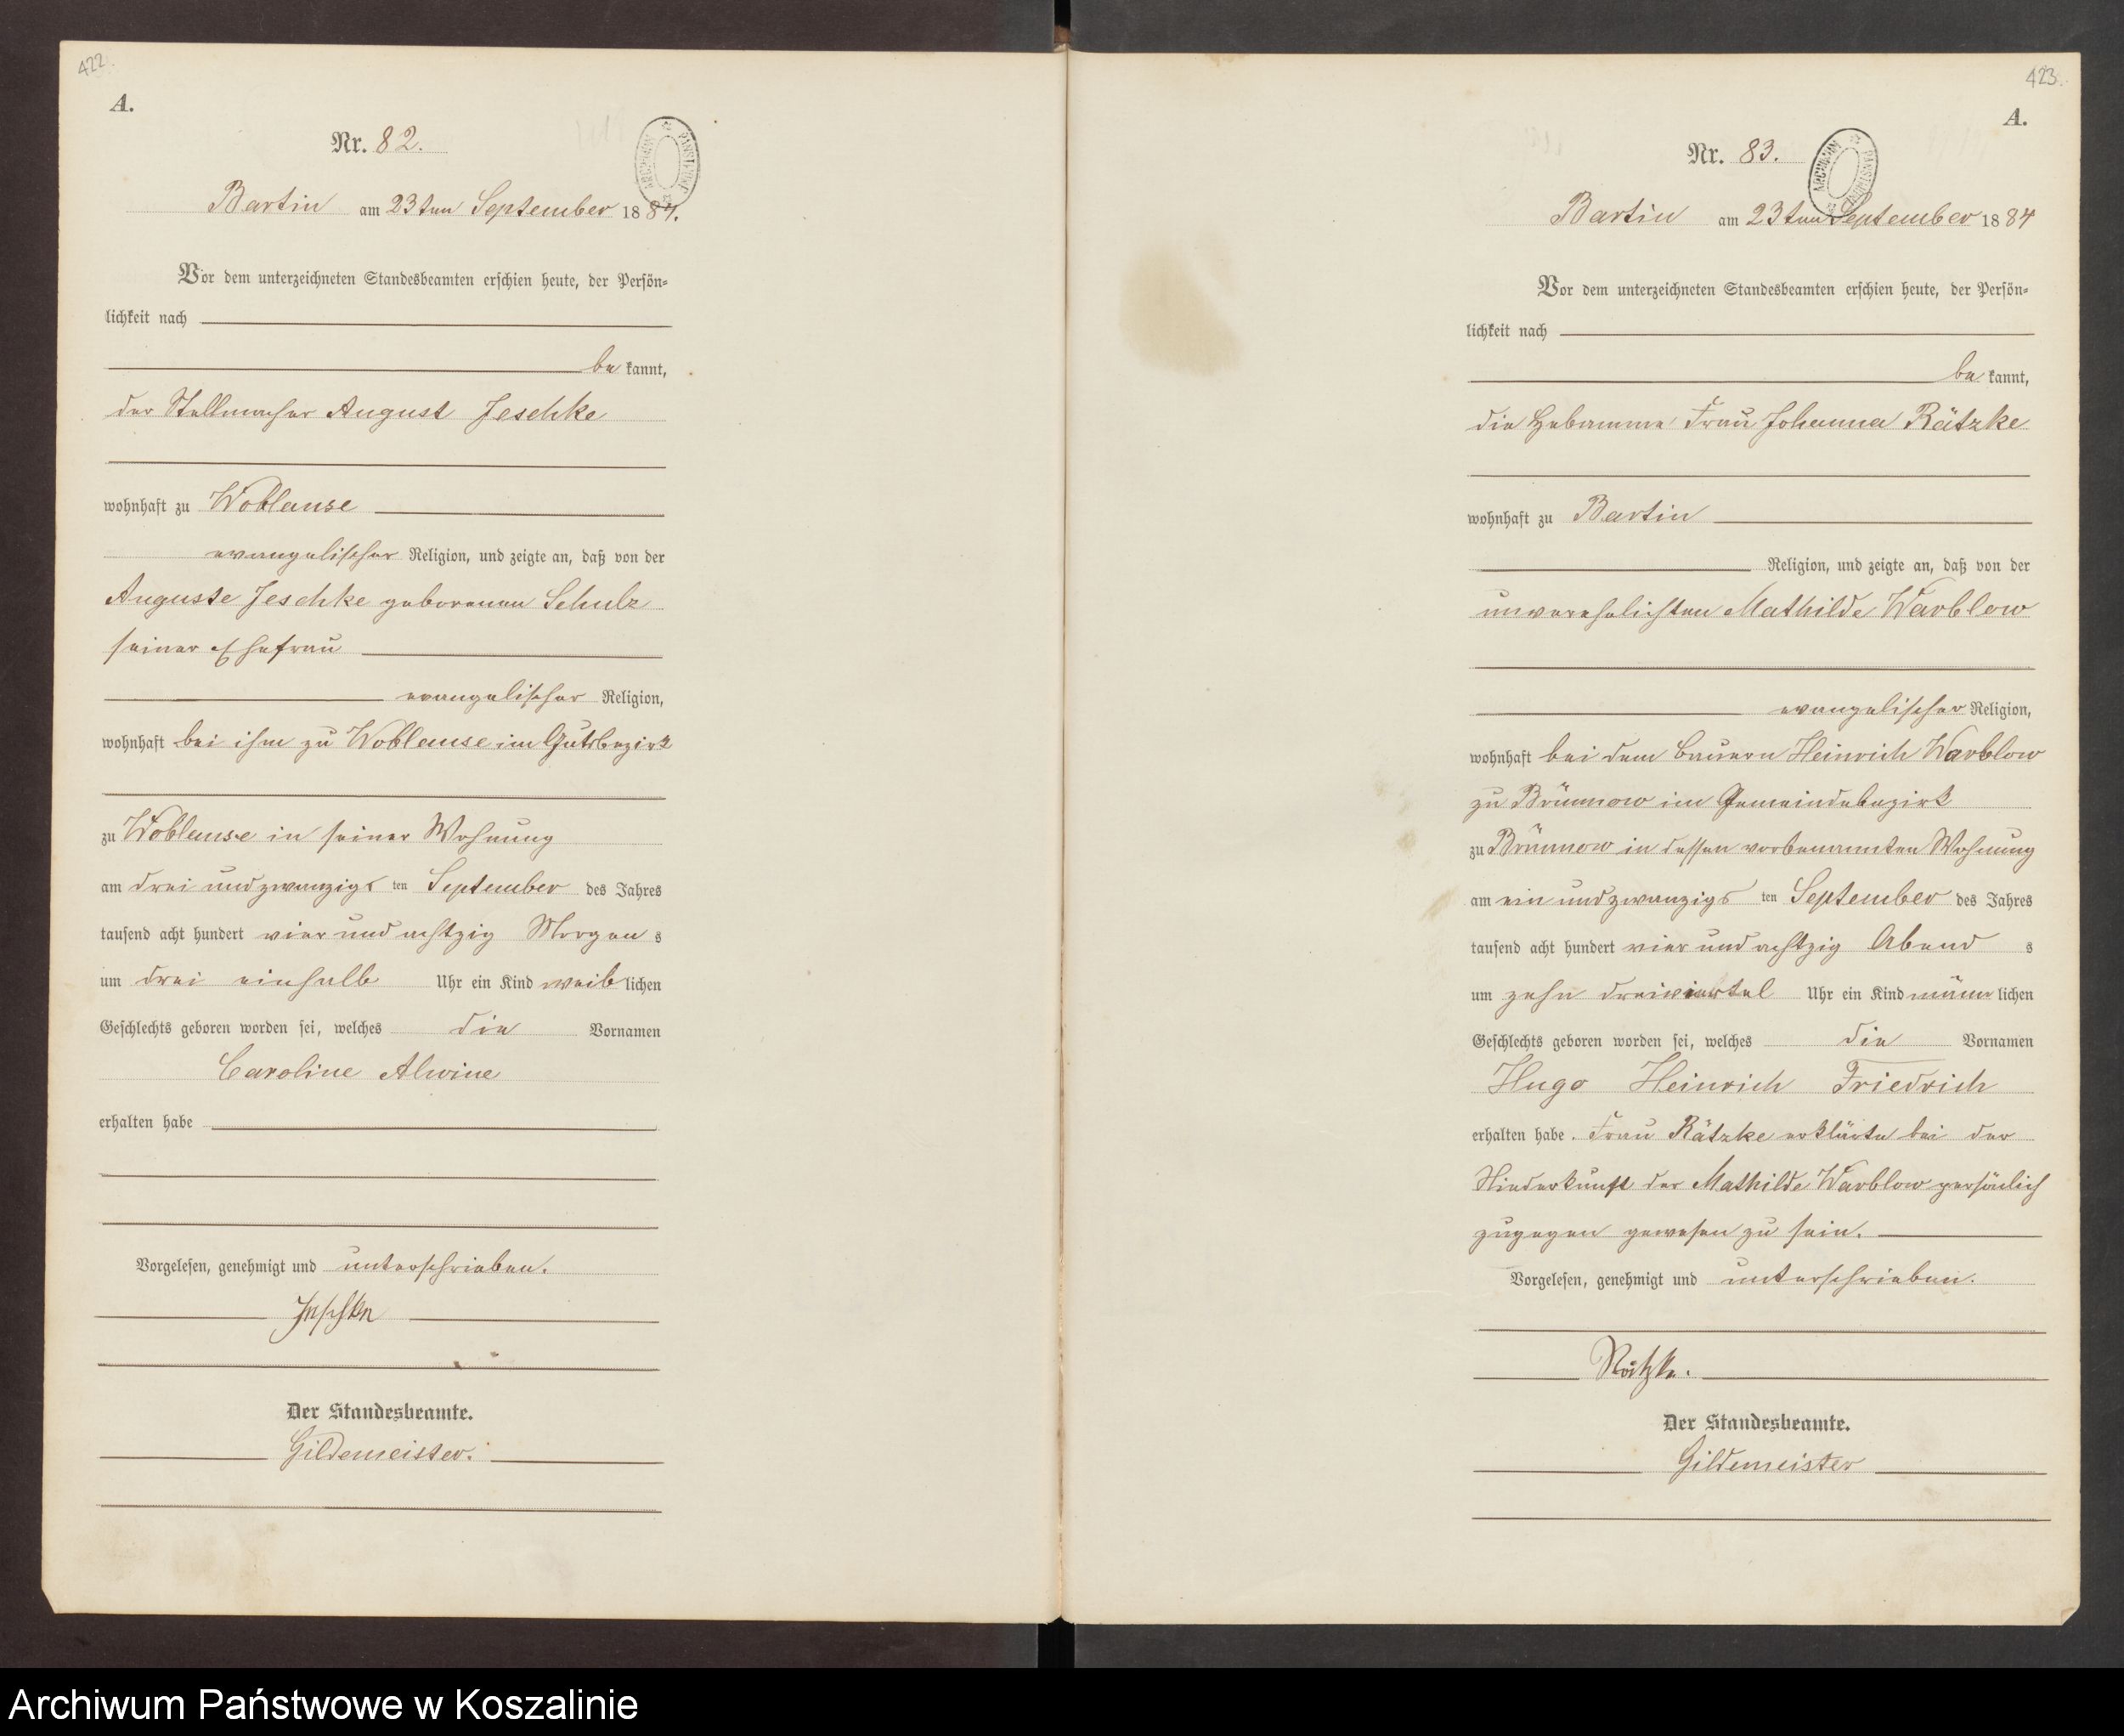 422.
A.
Nr. 82.
ARCHIWUM PAŃSTWOWE
Bartin am 23ten September 1884.
Vor dem unterzeichneten Standesbeamten erschien heute, der Persön-
lichkeit nach
be kannt,
der Stellmacher August Jeschke
wohnhaft zu Woblanse
evangelischer Religion, und zeigte an, daß von der
Auguste Jeschke geborenen Schulz
seiner Ehefrau
evangelischer Religion,
wohnhaft bei ihm zu Woblanse im Gutsbezirk
zu Woblanse in seiner Wohnung
am drei und zwanzigs ten September des Jahres
tausend acht hundert vier und achtzig Morgen s
um drei einhalb Uhr ein Kind weib lichen
Geschlechts geboren worden sei, welches die Vornamen
Caroline Alwine
erhalten habe
Vorgelesen, genehmigt und unterschrieben.
Jeschke
Der Standesbeamte.
Gildemeister.
423.
A.
Nr. 83.
ARCHIWUM PAŃSTWOWE
Bartin am 23ten September 1884
Vor dem unterzeichneten Standesbeamten erschien heute, der Persön-
lichkeit nach
be kannt,
die Hebamme Frau Johanna Rätzke
wohnhaft zu Bartin
Religion, und zeigte an, daß von der
unverehelichten Mathilde Warblow
evangelischer Religion,
wohnhaft bei dem Bauern Heinrich Warblow
zu Brünnow im Gemeindebezirk
zu Brünnow in dessen vorbenannten Wohnung
am ein und zwanzigs ten September des Jahres
tausend acht hundert vier und achtzig Abend s
um zehn dreiviertel Uhr ein Kind männ lichen
Geschlechts geboren worden sei, welches die Vornamen
Hugo Heinrich Friedrich
erhalten habe. Frau Rätzke erklärte bei der
Niederkunft der Mathilde Warblow persönlich
zugegen gewesen zu sein.
Vorgelesen, genehmigt und unterschrieben.
Rätzke.
Der Standesbeamte.
Gildemeister
Archiwum Państwowe w Koszalinie